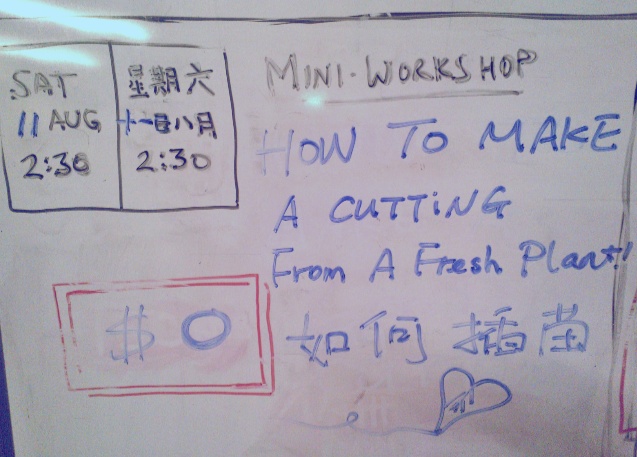 SAT
11 AUG
2:30
星期六
十一日八月
2:30
MINI-WORKSHOP
HOW TO MAKE
A CUTTING
From A Fresh Plant!
$0
如何插苗